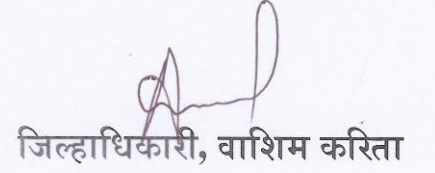 जिल्हाधिकारी, वाशिम करिता